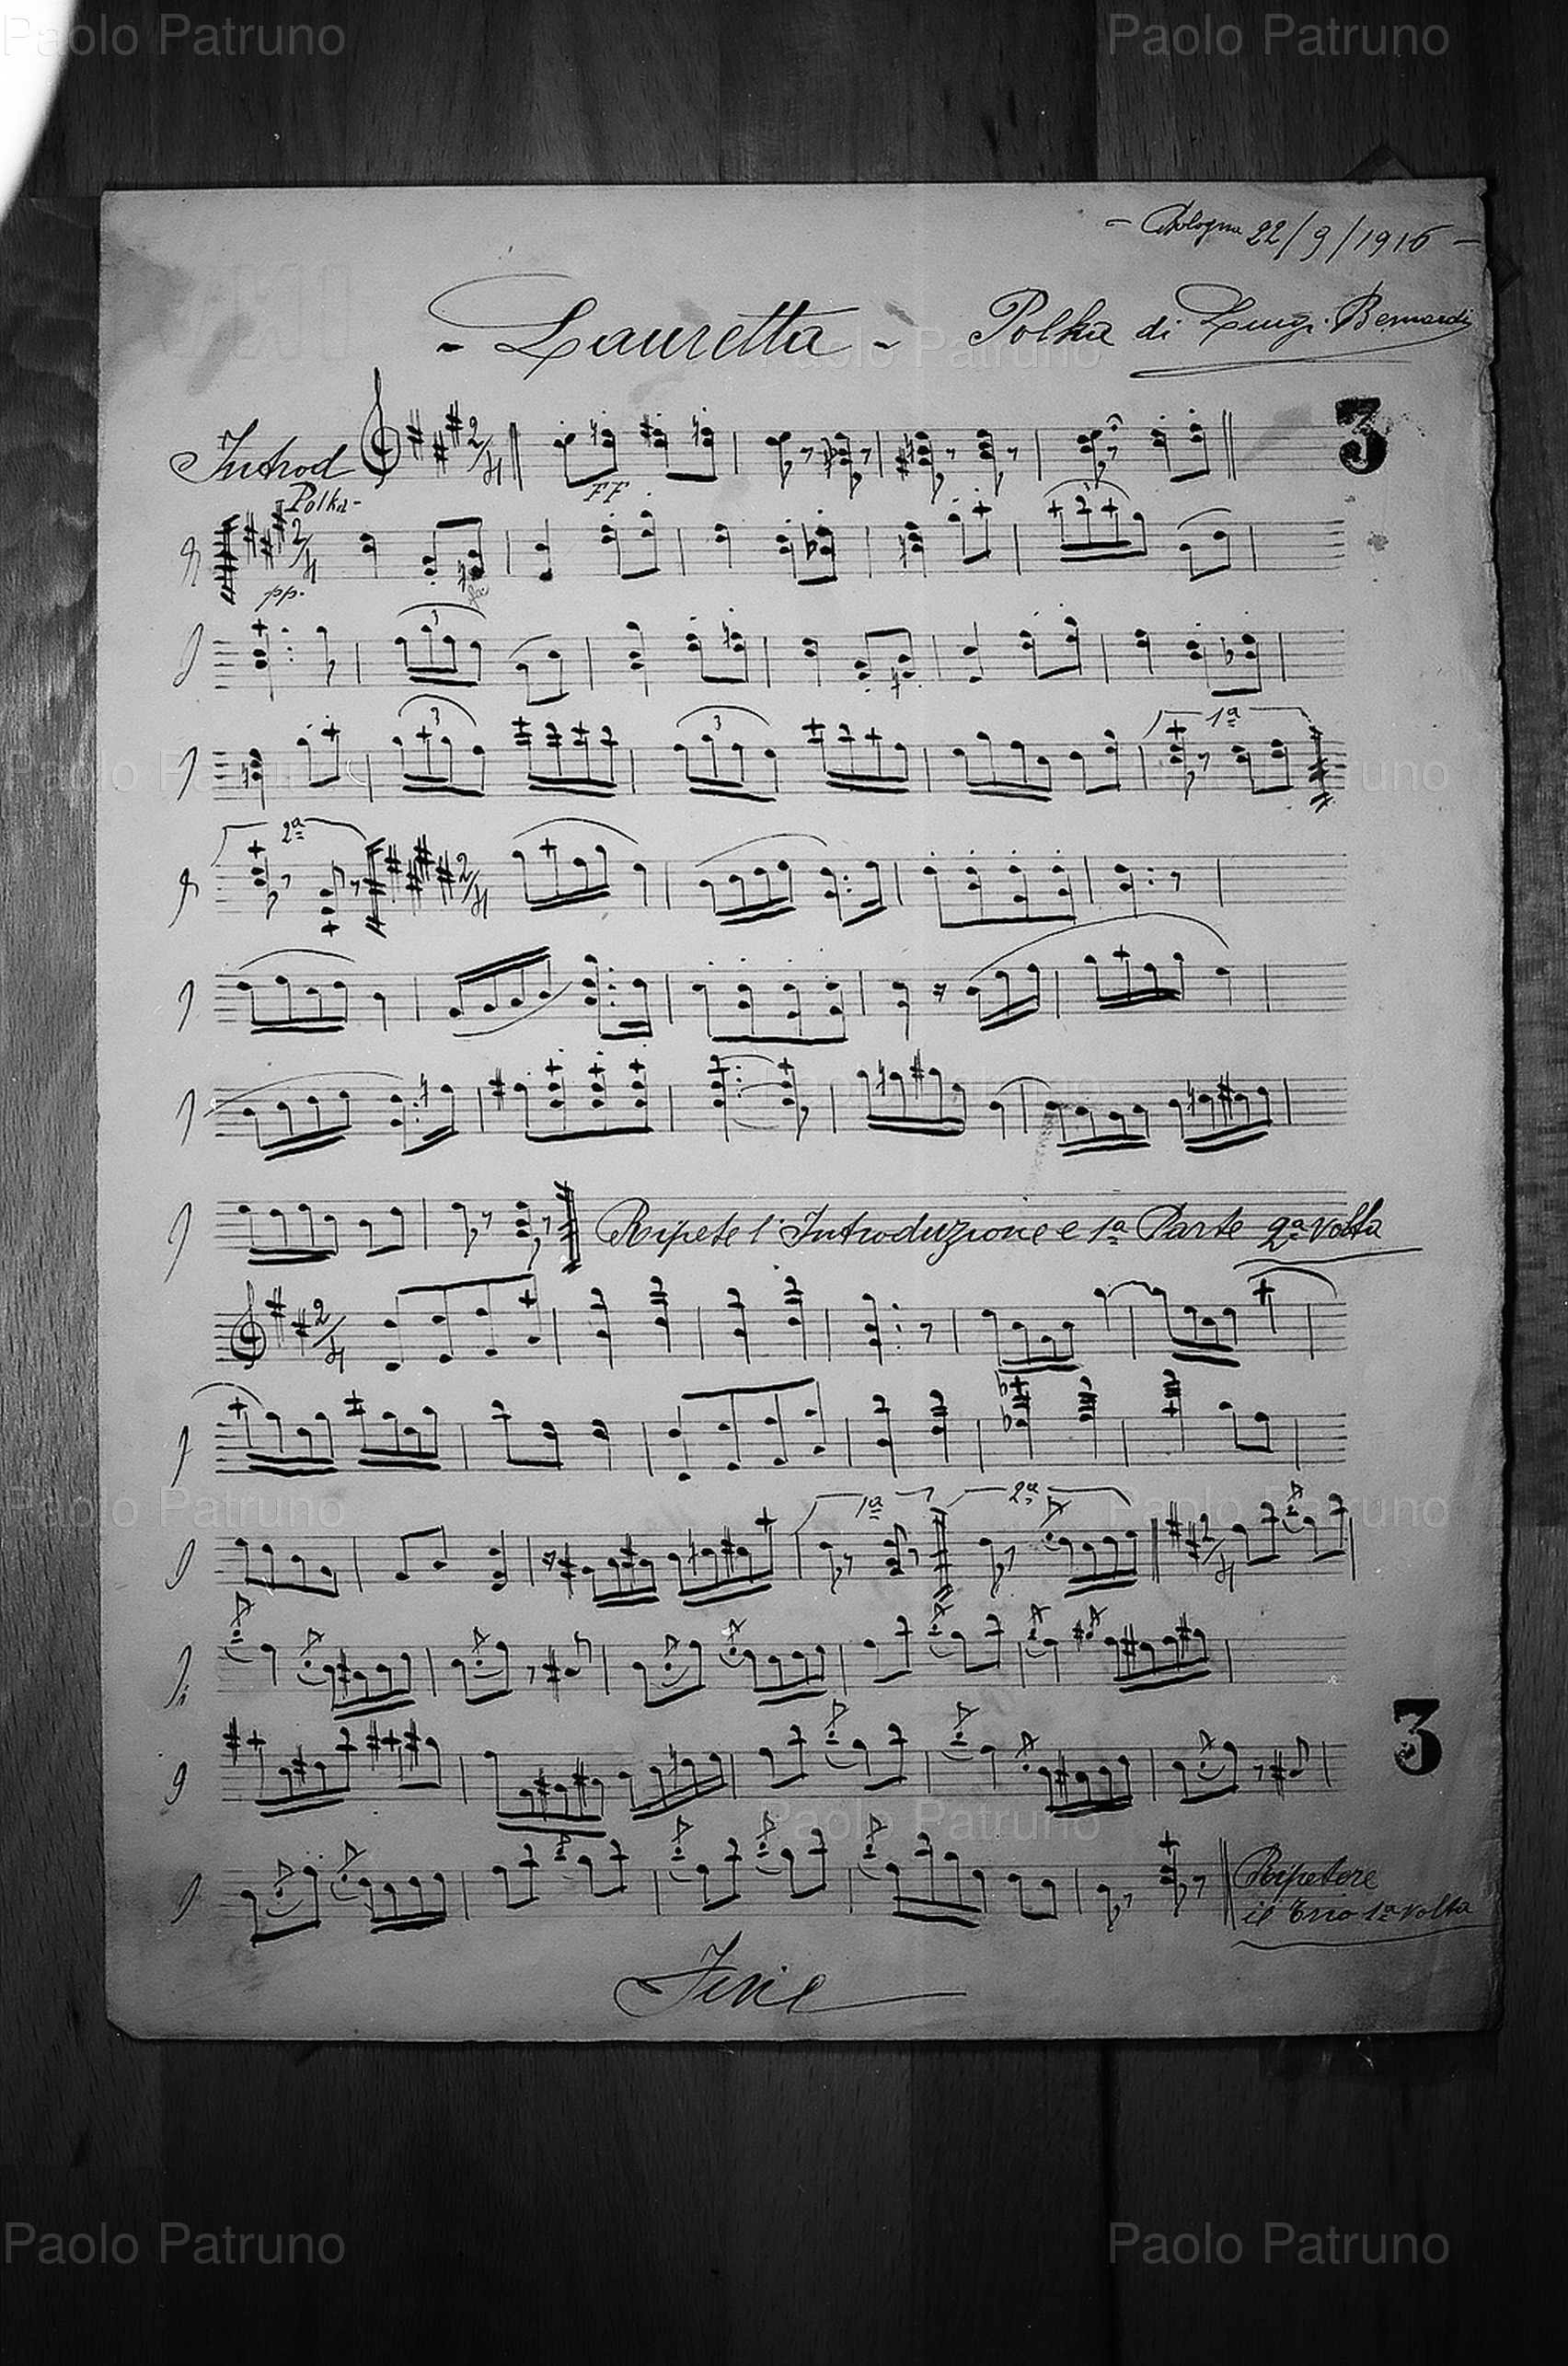 Paolo Patruno Paolo Patruno
- Bologna 22/9/1916 -
- Lauretta - Polka di Luigi Bernardi
Paolo Patruno
3
Introd
FF
Polka-
pp.
3
3
Paolo Patruno Paolo Patruno
3
3
1ª
2ª
Paolo Patruno
Ripete l'Introduzione e 1ª Parte 2ª volta
Paolo Patruno Paolo Patruno
1ª 2ª
3
Paolo Patruno
Ripetere
il Trio 1ª volta
Fine
Paolo Patruno Paolo Patruno